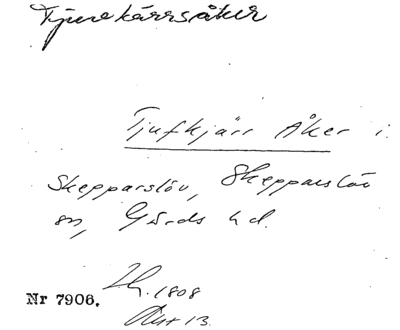 Tjuvekärrsåker
Tjufkjärr Åker i
Skepparslöv, Skepparslöv
sn, Gärds hd.
Nr 7906. 1808
Akt 13.